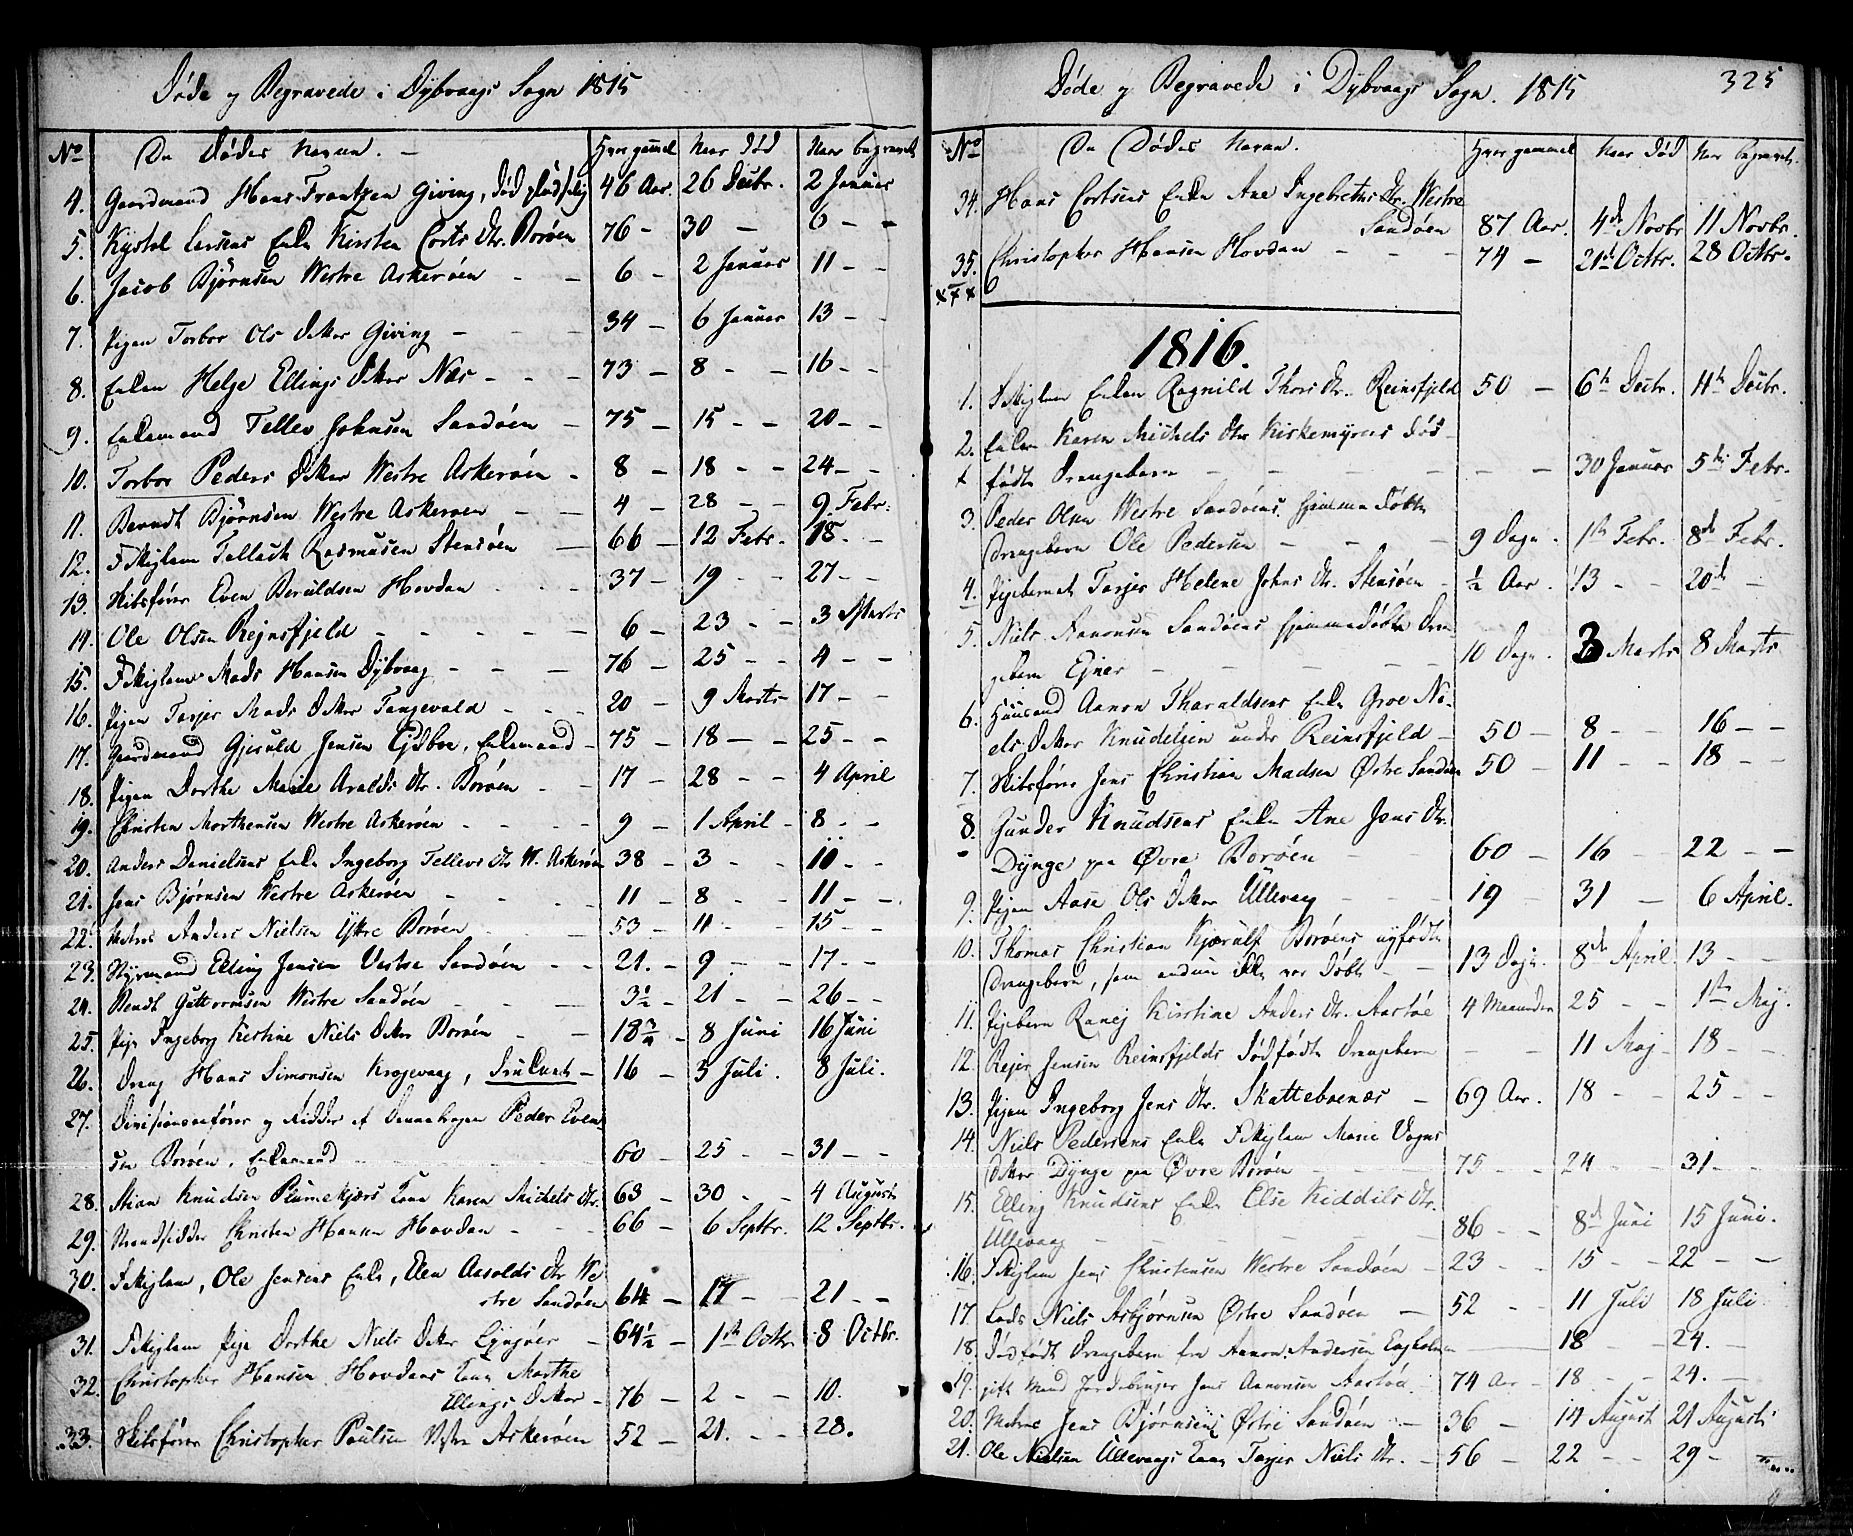 Døde og Begravede i Dybvaags Sogn 1815
No De Dødes Navne. Hvor gammel Naar død Naar begravet
4. Gaardmand Hans Frantzen Giving, død pludselig 46 Aar. 26 Decbr. 2 Januar
5. Kystol Larsens Enke Kirsten Corts Dtr. Borøen 76 – 30 – 6 – –
6. Jacob Bjørnsen Westre Askerøen – – 6 – 2 Januar 11 – –
7. Pigen Torbor Ols Datter Giving – – – 34 – 6 Januar 13 – –
8. Enken Helge Ellings Datter Næs – – – 73 – 8 – – 16 – –
9. Enkemand Tellev Johnsen Sandøen – 75 – 15 – – 20 – –
10. Torbor Peders Datter Westre Askerøen – 8 – 18 – – 24 – –
11. Berendt Bjørnsen Westre Askerøen – – 4 – 28 – – 9 Febr.
12. Fattiglem Tellach Rasmusen Stensøen – 66 – 12 Febr. 18. –
13. Skibsfører Even Beruldsen Hovdan – – 37 – 19 – – 27 – –
14. Ole Olsen Reinsfjeld – – – – – 6 – 23 – – 3 Marts
15. Fattiglem Mads Hansen Dybvaag – – – 76 – 25 – – 4 – –
16. Pigen Tarjer Mads Datter Tangevald – – – 20 – 9 Marts 17 – –
17. Gaardmand Gjeruld Jensen Eidboe, Enkemand – 75 – 18 – – 25 – –
18. Pigen Dorthe Marie Aralds Dtr. Borøen – – 17 – 28 – – 4 April
19. Christen Morthensen Westre Askerøen – – – 9 – 1 April – 8 – –
20. Anders Danielsens Enke Ingeborg Tellevs Dtr W. Askerøen 38 – 3 – – 10 – –
21. Jens Bjørnsen Westre Askerøen – – – – 11 – 8 – – 11 – –
22. Matros Anders Nielsen Ytre Borøen – – 53 – 11 – 15 – –
23. Styrmand Elling Jensen Vestre Sandøen – – 21. – 9 – – 17 – –
24. Bendt Guttormsen Westre Sandøen – – – 3½ – 21 – – 26 – –
25. Pige Ingeborg Kirstine Niels Datter Borøen – – 18¾ – 8 Juni 16 Juni
26. Dreng Hans Simonsen Krogevaag, Druknet – 16 – 5 Juli. 8 Juli.
27. Divisionschefører og Ridder af Dannebrogen Peder Even-
sen Borøen, Enkemand – – – 60 – 25 – – 31 – –
28. Stian Knudsen Plumekjærs Kone Karen Michels Dtr. 63 – 30 – – 4 August
29. Strandsidder Christen Hansen Hovdan – – – 66 – 6 Septbr. 12 Septbr.
30. Fattiglem, Ole Jensens Enke, Elen Aasolds Dtr We-
stre Sandøen 64 – 14 – – 21 – –
31. Fattiglem Pige Dorthe Niels Datter Lyngøer – 64½ – 1ste Octbr. 8 Octbr.
32. Christopher Hansen Hovdans Kone Marthe
Ellings Datter – 76 – 2 – – 10.
33. Skibsfører Christopher Poulsen Vestre Askerøen 52 – 21. – – 28.
Døde og Begravede i Dybvaags Sogn. 1815 325
No De Dødes Navne. Hvor gammel Naar død Naar begravet.
34. Hans Cortsens Enke Ane Ingebreths Dtr. Westre
Sandøen 87 Aar. 4de Novbr. 11 Novbr.
35. Christopher Hansen Hovdan – – – 74 – 21de Octbr. 28 Octbr.
1816.
1. Fattiglem Enken Ragnild Thors Dtr. Reinsfjeld 50 – 6te Decbr. 11te Decbr.
2. Enken Karen Michels Dtr Kirkemyrens død-
fødte Drengebarn – – – – – – – 30 Januar 5te Febr.
3. Peder Olsen Westre Sandøens hjemmedøbte
Drengebarn Ole Pedersen – – – 9 Dage. 1ste Febr. 8de Febr.
4. Pigebarnet Tarjer Helene Johns Dtr. Stensøen – ½ Aar. 13 – – 20de –
5. Niels Aanonsen Sandøens hjemmedøbte Dren-
gebarn Ejner – – – – – 10 Dage. 3 Marts 8 Marts
6. Huusmand Aanon Tharaldsens Enke Groe Ni-
els Datter Knudelien under Reinsfjeld – 50 – 8 – – 16 – –
7. Skibsfører Jens Christian Madsen Østre Sandøen 50 – 11 – – 18 – –
8. Gunder Knudsens Enke Ane Jens Dtr.
Dynge paa Øvre Borøen – 60 – 16 – 22 – –
9. Pigen Aase Ols Datter Ullevaag – – – 19 – 31 – 6 April.
10. Thomas Christian Kjærulf Borøens nyfødte
Drengebarn, som endnu ikke var døbt – – 13 Dage. 8de April. 13 – –
11. Pigebarn Ranej Kirstine Anders Dtr. Aastøe 4 Maaneder 25 – – 1ste Maj.
12. Rejer Jensen Reinsfjelds dødfødte Drengebarn – – 11 Maj – 18 – –
13. Pigen Ingeborg Jens Dtr. Skatteboenæs – 69 Aar. 18 – – 25 – –
14. Niels Pedersens Enke Fattiglem Marie Vogns
Datter Dynge paa Øvre Borøen – – – 75 – – 24 – – 31 – –
15. Elling Knudsens Enke Else Kiddils Dtr.
Ullevaag – – – – – – 86 – – 8de Juni 15 Juni.
16. Fattiglem Jens Christensen Westre Sandøen – 23 – – 15 – – 22 – –
17. Lods Niels Asbjørnsen Østre Sandøen – 52 – – 11 Juli 18 Juli
18. Dødfødt Drengebarn fra Aanon Andersen Engholmen – 18 – – 24. –
19. gift Mand Jordebruger Jens Aanonsen Aastøe. 74 Aar – 18 – – 24. –
20. Matros Jens Bjørnsen Østre Sandøen – – 36 – 14 August 21 August
21. Ole Nielsen Ullevaags Kone Tarjer Niels Dtr. – 56 – 22 – – 29 –